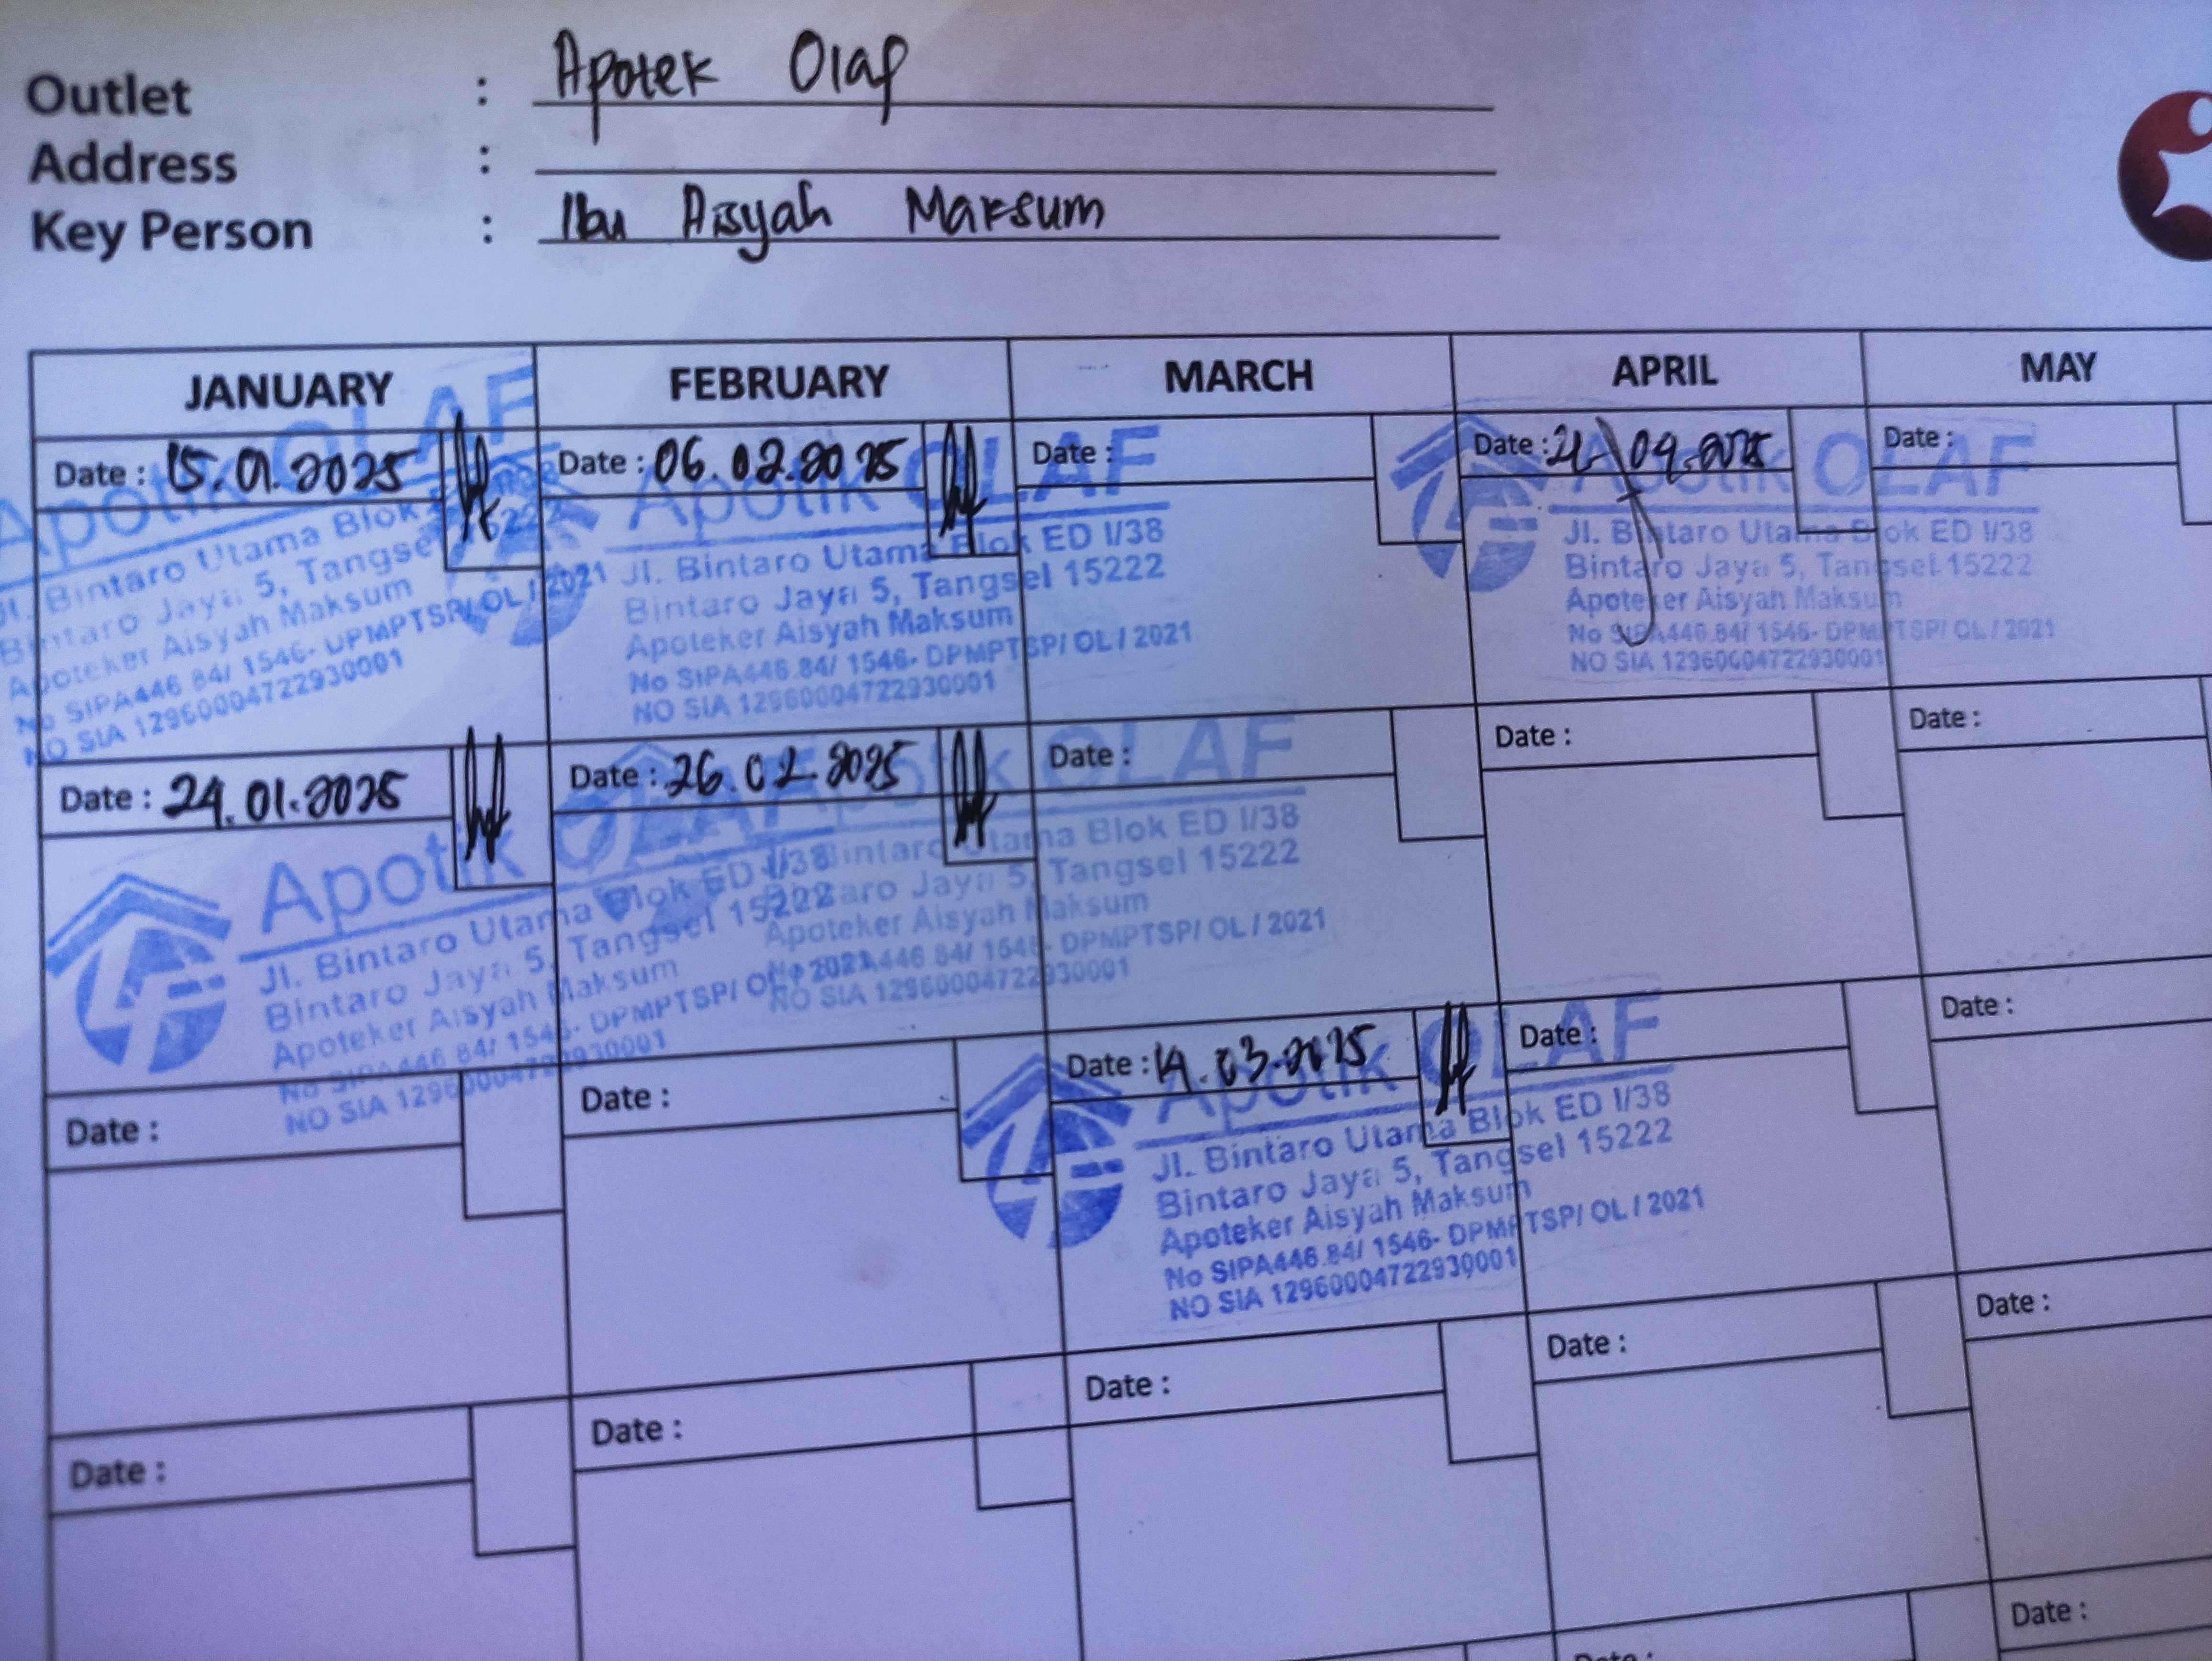 Outlet : Apotek Olaf
Address :
Key Person : Ibu Aisyah Maksum
JANUARY FEBRUARY MARCH APRIL MAY
Date : 15.01.2025 Date : 06.02.2025 Date : Date : 21 04.2025 Date :
Apotik OLAF
Jl. Bintaro Utama Blok
Bintaro Jaya 5, Tangsel 15222
Apoteker Aisyah Maksum
No SIPA446.84/ 1546- DPMPTSP/ OL / 2021
NO SIA 12960004722930001
Apotik OLAF
Jl. Bintaro Utama Blok ED I/38
Bintaro Jaya 5, Tangsel 15222
Apoteker Aisyah Maksum
No SIPA446.84/ 1546- DPMPTSP/ OL / 2021
NO SIA 12960004722930001
Apotik OLAF
Jl. Bintaro Utama Blok ED I/38
Bintaro Jaya 5, Tangsel 15222
Apoteker Aisyah Maksum
No SIPA446.84/ 1546- DPMPTSP/ OL / 2021
NO SIA 12960004722930001
Date : 24.01.2025 Date : 26.02.2025 Date : Date : Date :
Apotik OLAF
Jl. Bintaro Utama Blok ED I/38
Bintaro Jaya 5, Tangsel 15222
Apoteker Aisyah Maksum
No SIPA446.84/ 1546- DPMPTSP/ OL / 2021
NO SIA 12960004722930001
Apotik OLAF
Jl. Bintaro Utama Blok ED I/38
Bintaro Jaya 5, Tangsel 15222
Apoteker Aisyah Maksum
No SIPA446.84/ 1546- DPMPTSP/ OL / 2021
NO SIA 12960004722930001
Date : Date : Date : 14.03.2025 Date : Date :
Apotik OLAF
Jl. Bintaro Utama Blok ED I/38
Bintaro Jaya 5, Tangsel 15222
Apoteker Aisyah Maksum
No SIPA446.84/ 1546- DPMPTSP/ OL / 2021
NO SIA 12960004722930001
Date : Date : Date : Date : Date :
Date : Date :